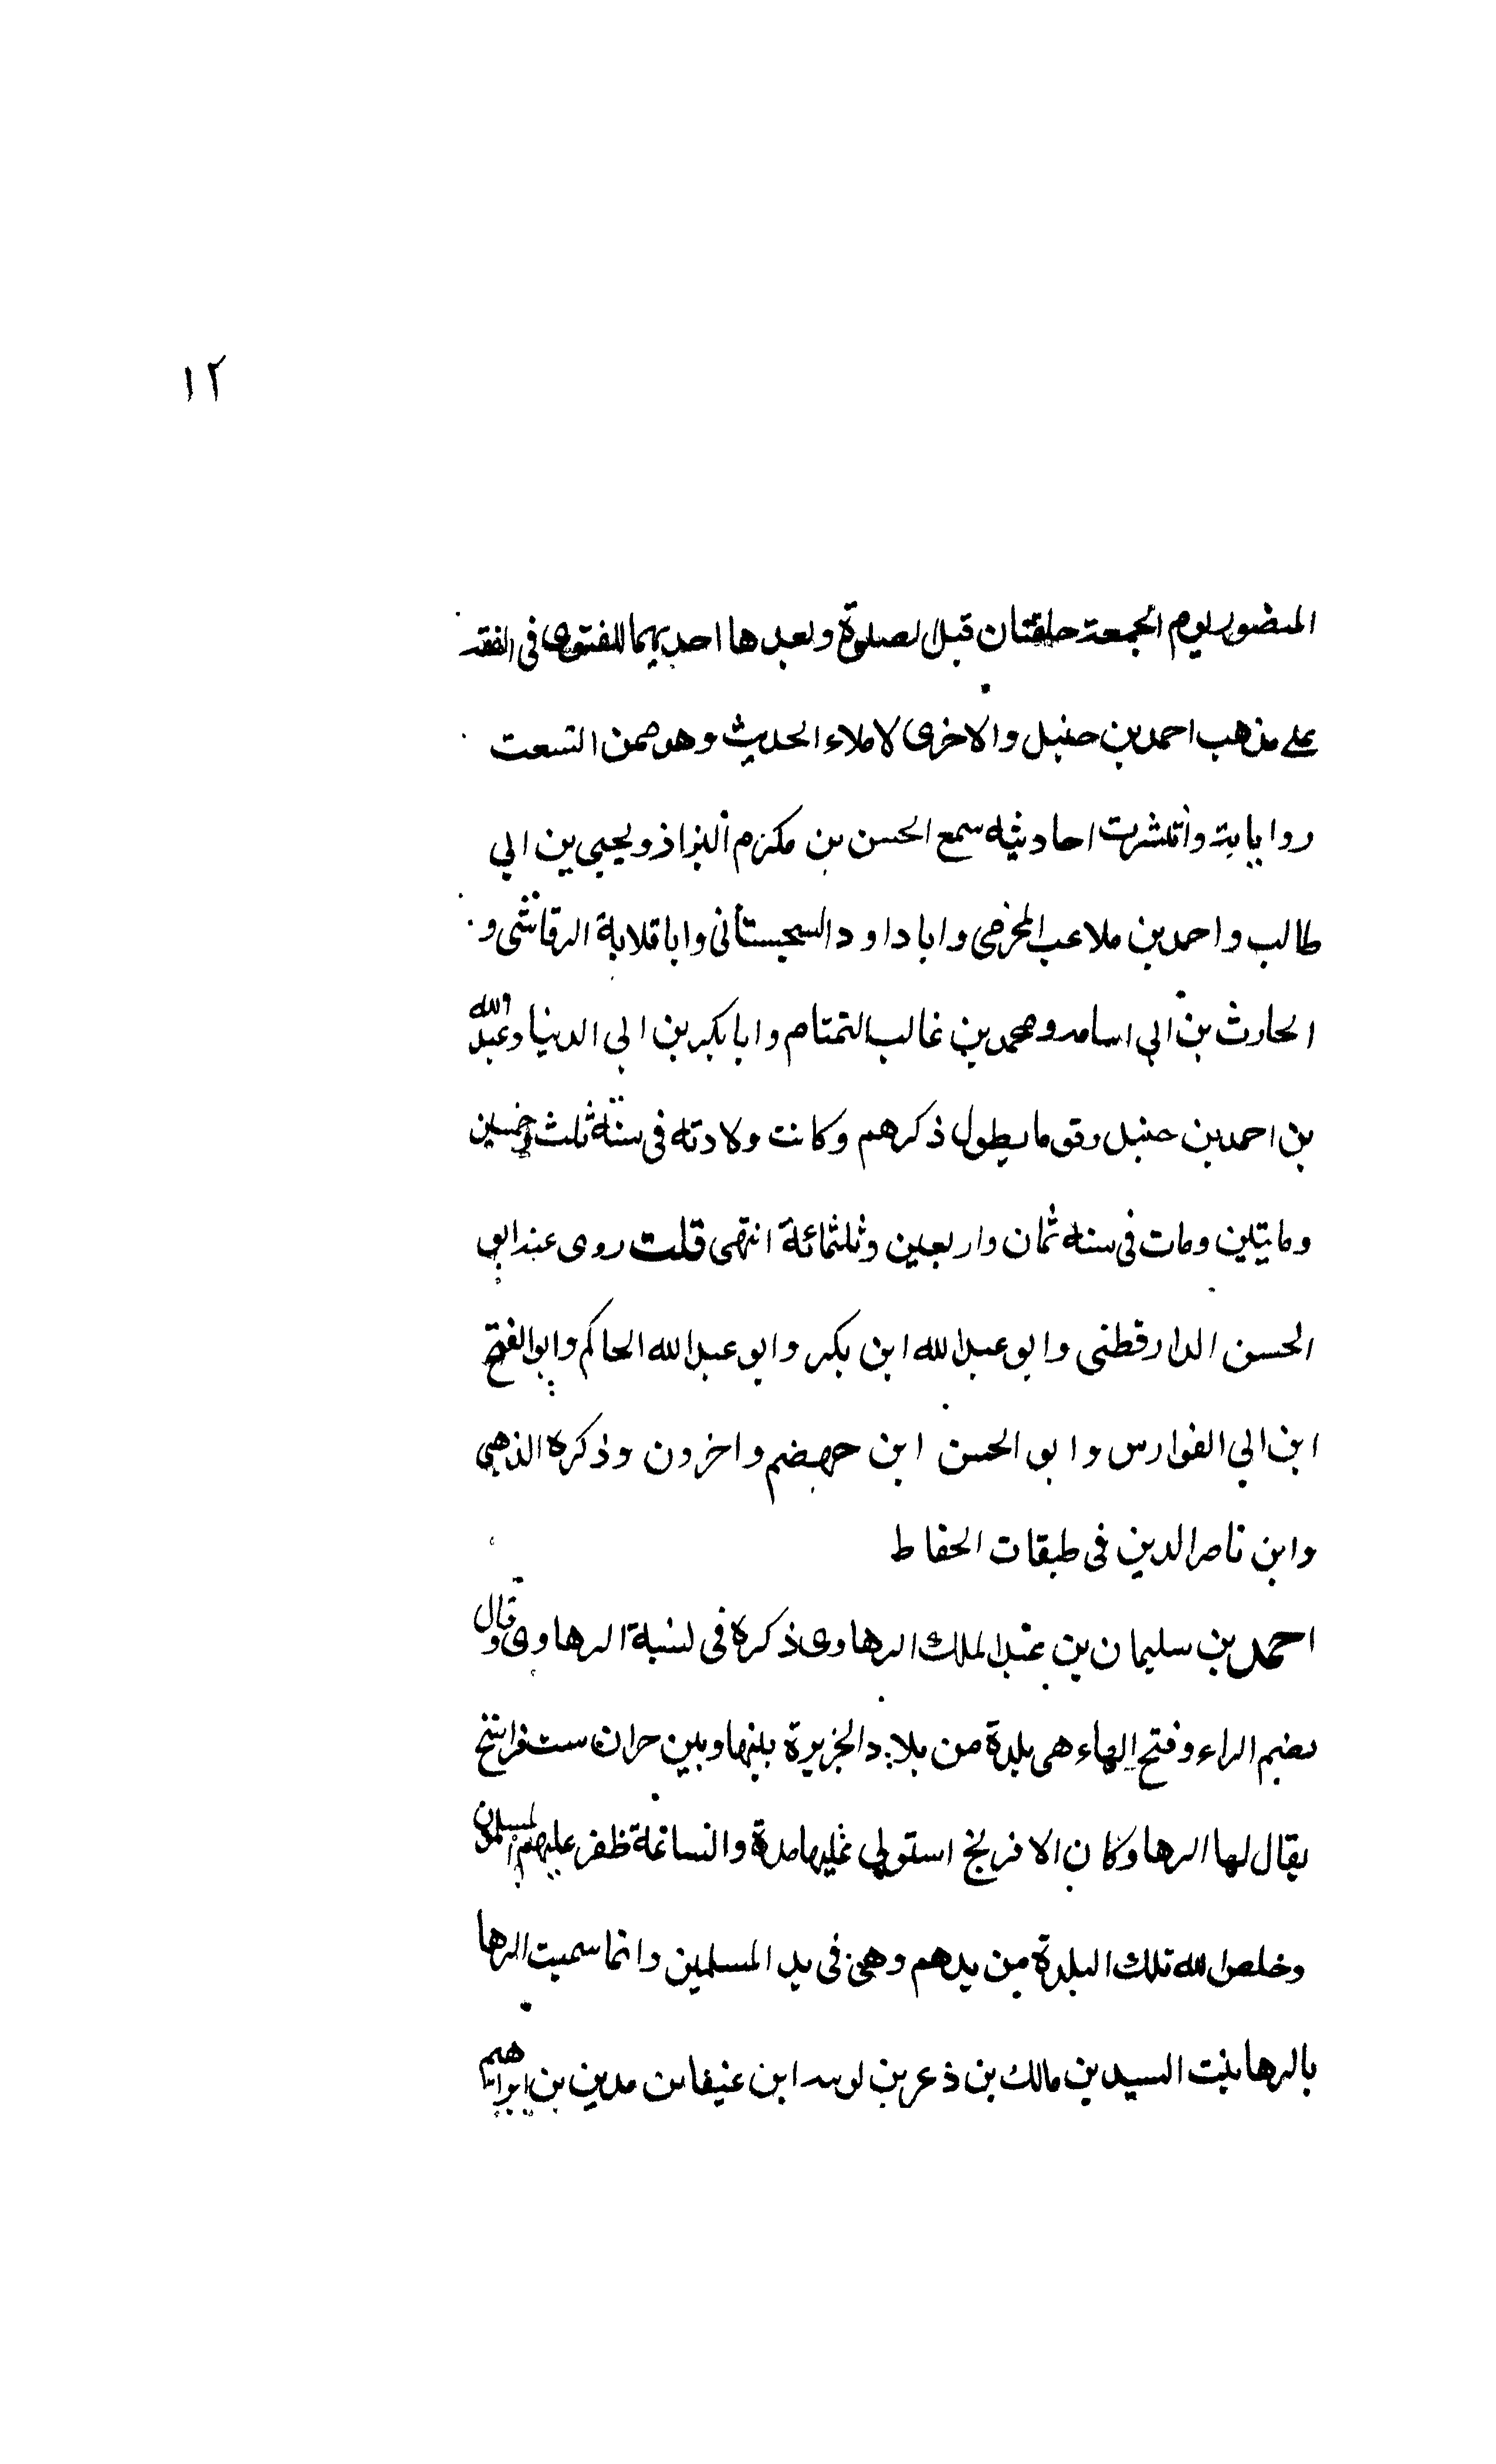 ١٢
المنصور يوم الجمعة حلقتان قبل لصلوة وبعدها احديهما للفتوى فى الفقه
على مذهب احمد بن حنبل والاخرى لاملاء الحديث وهو ممن اتسعت
رواياية وانتشرت احاديثه سمع الحسن بن مكرم البزاذ ويحيى بن ابي
طالب واحمد بن ملاعب المخرمى وابا داود السجستانى وابا قلابة الرقاشى و
الحارث بن ابي اسامه ومحمد بن غالب التمتام وابا بكر بن ابي الدنيا وعبد الله
بن احمد بن حنبل وقوما يطول ذكرهم وكانت ولادته فى سنة ثلث وخمسين
ومايتين ومات فى سنه ثمان واربعين وثلثمائة انتهى قلت روى عنه ابو
الحسن الدارقطنى وابو عبد الله ابن بكير وابو عبد الله الحاكم وابو الفتح
ابن ابي الفوارس وابو الحسن ابن جهضم واخرون وذكره الذهبي
وابن ناصر الدين فى طبقات الحفاط
احمد بن سليمان بن عبد الملك الرهاوى ذكره فى نسبة الرهاوى وقال
بضم الراء وفتح الهاء هى بلدة من بلاد الجزيرة بينها وبين حران ست فراسخ
يقال لها الرها وكان الافرنج استولي عليها مدة والساعة ظفر عليهم المسلمون
وخلص الله تلك البلدة من يدهم وهى فى يد المسلمين وانما سميت الرها
بالرها بنت السيد بن مالك بن ذعر بن لويه ابن عنيفا بن مدين بن ابراهيم